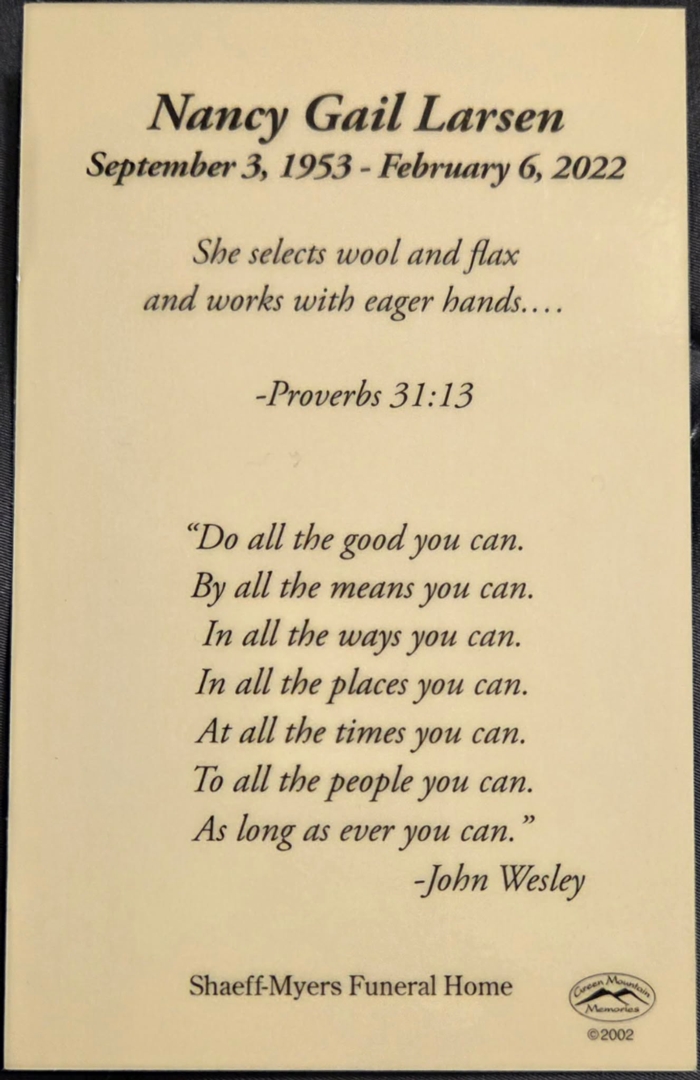 Nancy Gail Larsen
September 3, 1953 - February 6, 2022
She selects wool and flax
and works with eager hands....
-Proverbs 31:13
“Do all the good you can.
By all the means you can.
In all the ways you can.
In all the places you can.
At all the times you can.
To all the people you can.
As long as ever you can.”
-John Wesley
Shaeff-Myers Funeral Home
Green Mountain
Memories
©2002